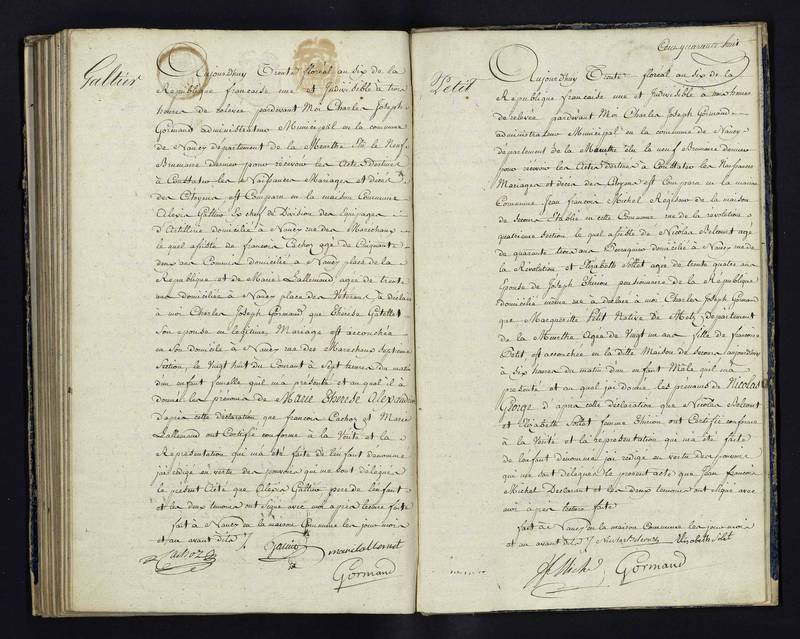 Galtier
Aujourd'huy Trente floréal an six de la
République française une et Indivisible à trois
heures de relevée pardevant Moi Charles Joseph
Gormand administrateur Municipal en la commune
de Nancy département de la Meurthe élu le Neuf
Brumaire dernier pour recevoir les Actes destinés
à Constater les Naissances Mariages et décès
des Citoyens est Comparu en la maison Commune
Alexis Galtier chef de Division des Equipages
d'Artillerie domicilié à Nancy rue des Marechaux
lequel assisté de francois Cachoz agé de Cinquante
deux ans Commis domicilié à Nancy place de la
République et de Marie Lallemand agée de trente
ans domiciliée à Nancy place de a déclaré
à moi Charles Joseph Gormand que Therese
son epouse en légitime Mariage est accouchée
en son domicile à Nancy rue des Marechaux Septieme
Section, le Vingt huit du Courant à Sept heures du matin
d'un enfant femelle quil m'a présenté et auquel il a
donné les prénoms de Marie Therese Alexandrine
d'après cette déclaration que francois Cachoz et Marie
Lallemand ont Certifié conforme à la Vérité et la
Représentation qui m'a été faite de l'enfant denommé
j'ai rédigé en vertu des pouvoirs qui me sont délégués
le présent Acte que Alexis Galtier pere de l'enfant
et les deux temoins ont Signé avec moi après lecture faite
fait à Nancy en la maison Commune les jour mois
et an avant dits
Cachoz Galtier marie lallemet
Gormand
Cent quarante huit
Petit
Aujourd'huy Trente floréal an six de la
République française une et Indivisible à heures
de relevée pardevant Moi Charles Joseph Gormand
administrateur Municipal en la commune de Nancy
département de la Meurthe élu le neuf Brumaire dernier
pour recevoir les Actes destinés à Constater les Naissances
Mariages et décès des Citoyens est Comparu en la maison
Commune Jean francois Michel Régisseur de la maison
de secours Etablie en cette Commune rue de la révolution
quatrieme section lequel assisté de Nicolas agé
de quarante trois ans domicilié à Nancy rue de
la Révolution, et Elizabeth agée de trente quatre ans
Epouse de Joseph pensionnaire de la République
domiciliée même rue a déclaré à moi Charles Joseph Gormand
que Marguerite Petit Native de Metz Département
de la Agée de Vingt un ans fille de francois
Petit est accouchée en la ditte Maison de secours aujourd'huy
à six heures du matin d'un enfant Mâle quil m'a
présenté et auquel j'ai donné les prénoms de Nicolas
George d'après cette déclaration que Nicolas
et Elizabeth femme ont Certifié conforme
à la Vérité et la représentation qui m'a été faite
de l'enfant denommé j'ai rédigé en vertu des pouvoirs
qui me sont délégués le présent acte que Jean francois
Michel Déclarant et les deux temoins ont signé avec
moi après lecture faite
fait à Nancy en la maison Commune les jour mois
et an avant dits Elizabeth
Michel Gormand